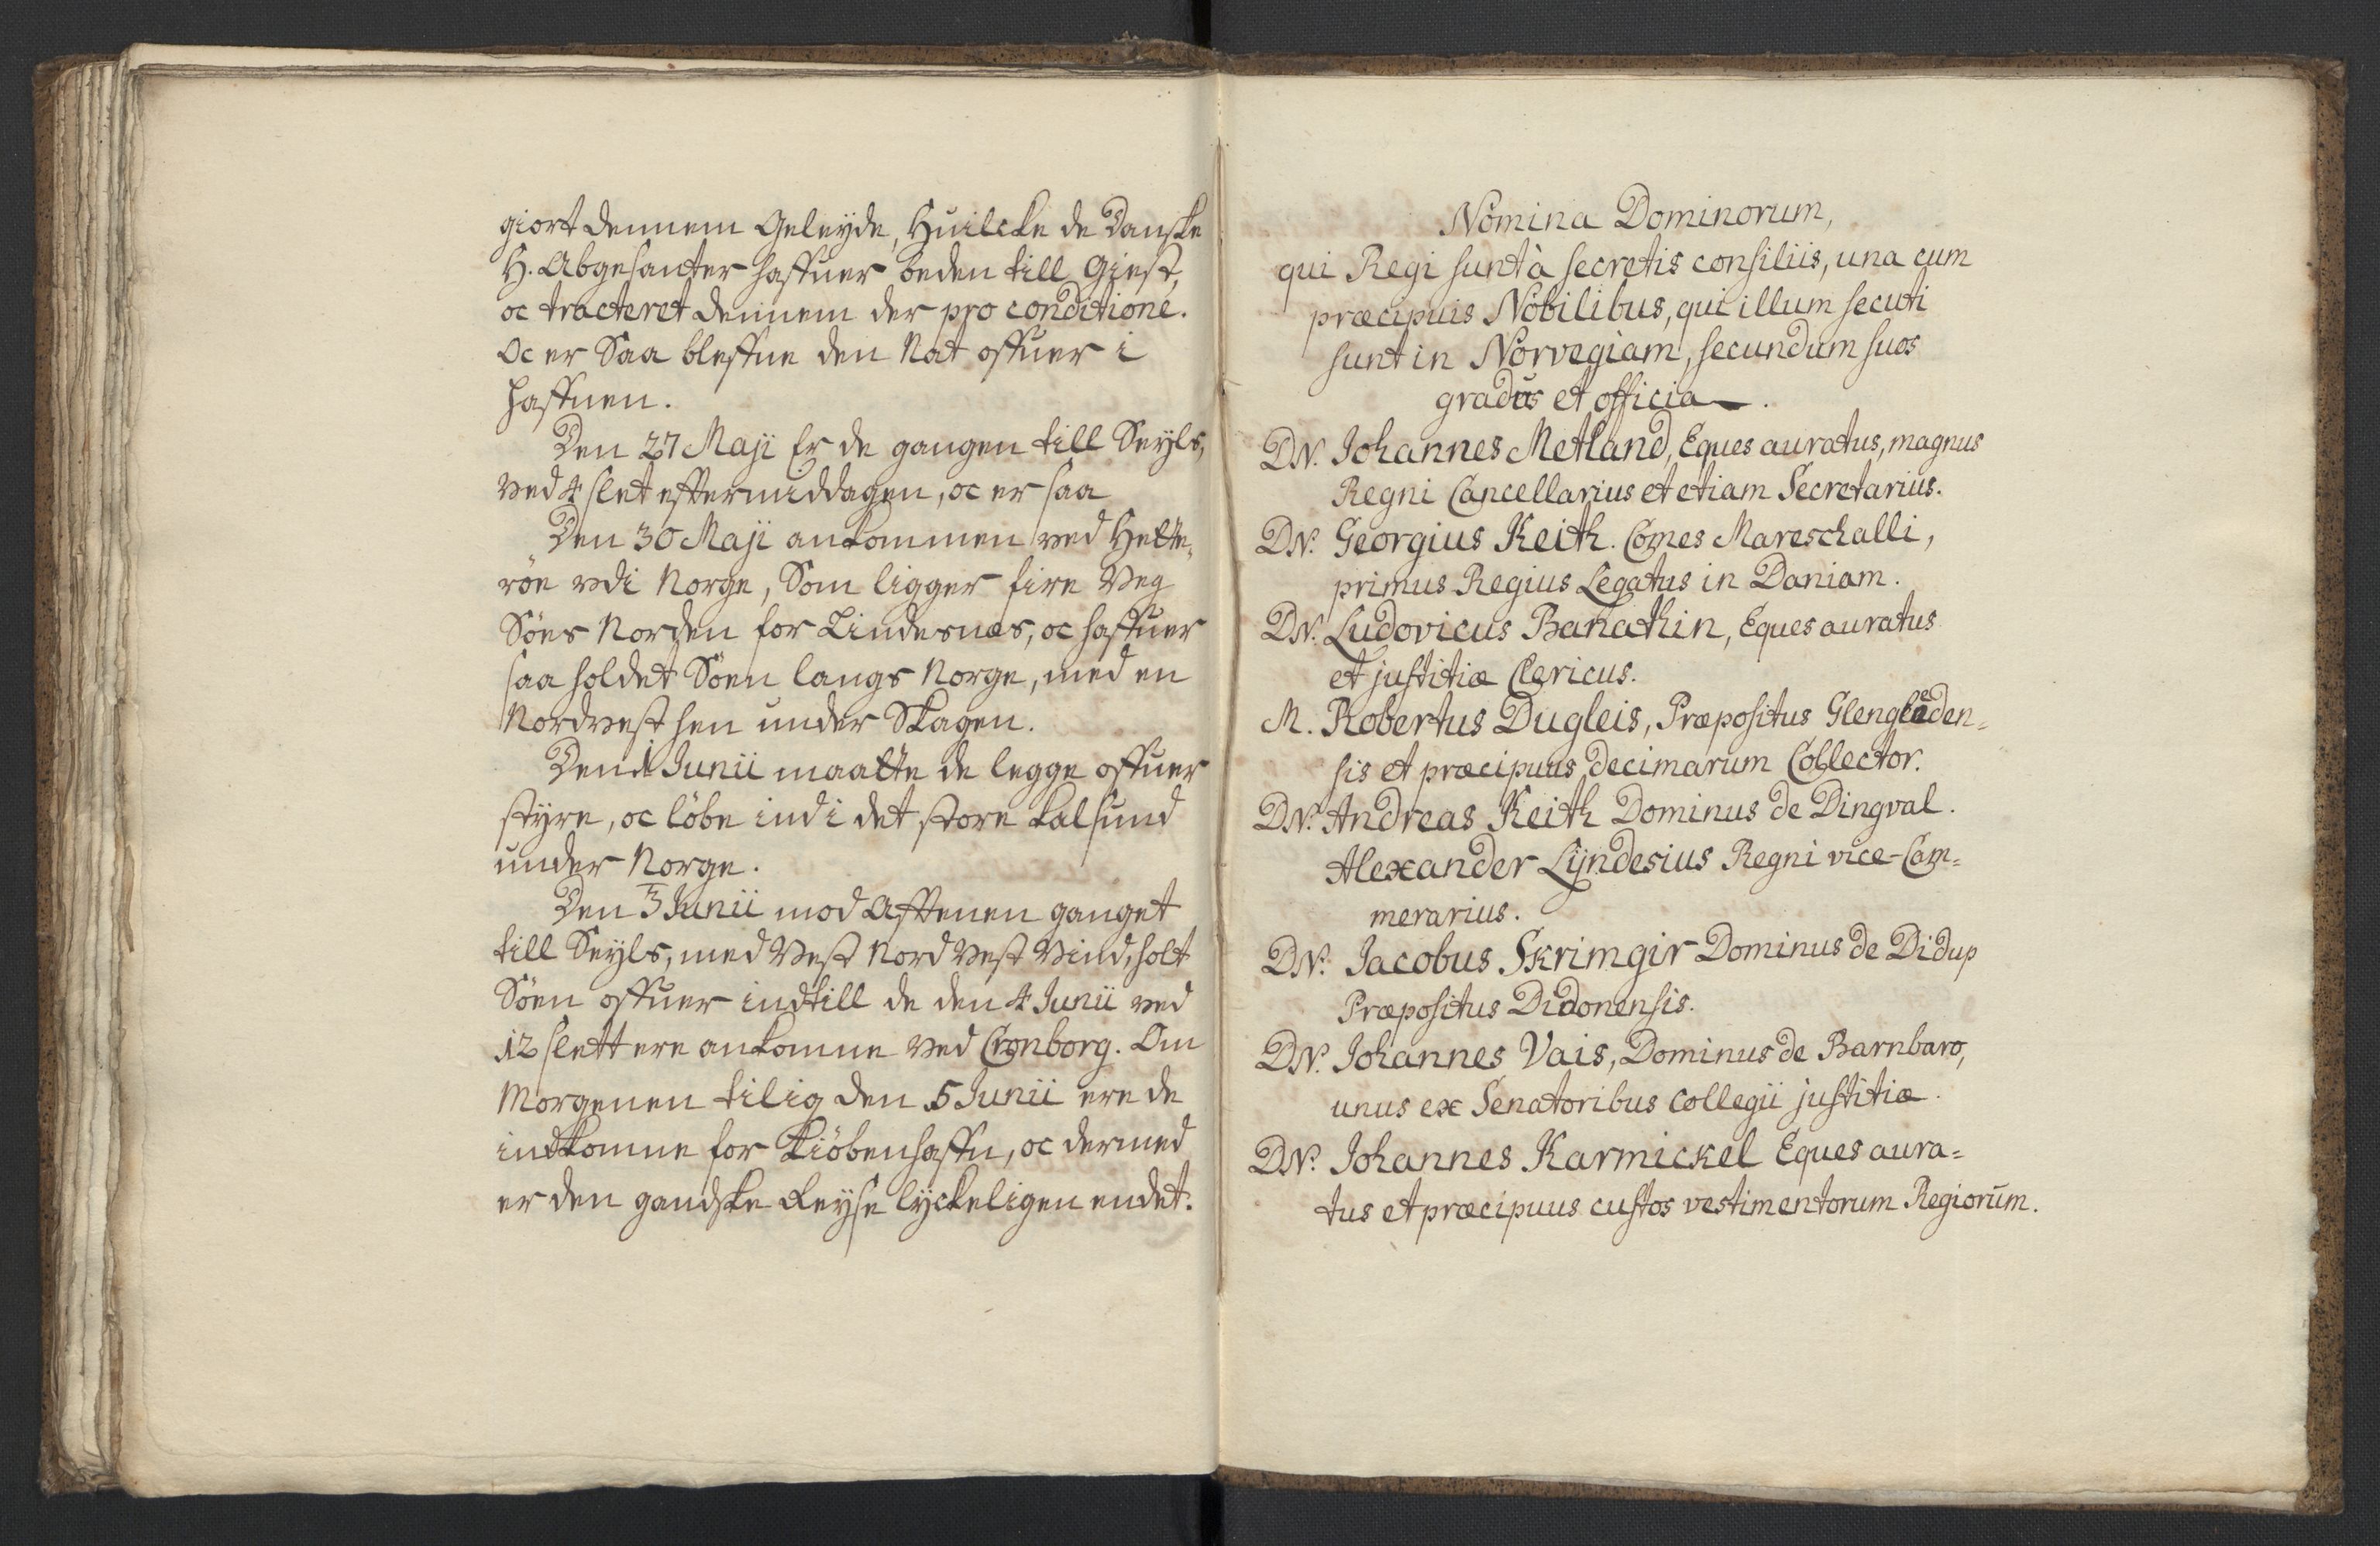 giort dennem Geleyde, Huilcke de Danske
H. Abgesanter haffuer beden till Giest,
oc tracteret dennem der pro conditione.
Oc er Saa bleffne den Nat offuer i
haffnen.
Den 27 Maji Er de gangen till Seyls,
ved 4 slet efftermiddagen, oc er saa
Den 30 Maji ankommen ved Hette-
röe vdi Norge, Som ligger fire Veg
Söes Norden for Lindesnæs, oc haffuer
saa holdet Söen langs Norge, med en
Nordvest hen under Skagen.
Den 1 Junii maatte de legge offuer
styre, oc löbe ind i det store Kalsund
under Norge.
Den 3 Junii mod Afftenen ganget
till Seyls, med Vest Nord Vest Vind, holt
Söen offuer indtill de den 4 Junii ved
12 slett ere ankomne ved Cronborg. Om
Morgenen tilig den 5 Junii ere de
indkomne for Kiöbenhaffn, oc dermed
er den gandske Reyse lyckeligen endet.
Nomina Dominorum,
qui Regi sunt à secretis consiliis, una cum
præcipuis Nobilibus, qui illum secuti
sunt in Norvegiam, secundum suos
gradus et officia.
DN. Johannes Metland, Eques auratus, magnus
Regni Cancellarius et etiam Secretarius.
DN. Georgius Keith. Comes Mareschalli,
primus Regius Legatus in Daniam.
DN. Ludovicus Banathin, Eques auratus
et justitiæ Clericus.
M. Robertus Dugleis, Præpositus Glengleden-
sis et præcipuus decimarum Collector.
DN. Andreas Keith Dominus de Dingval.
Alexander Lyndesius Regni vice-Cam-
merarius.
DN. Jacobus Skrimgir Dominus de Didup
Præpositus Didonensis.
DN. Johannes Vais, Dominus de Barnbaro,
unus ex Senatoribus Collegii justitiæ.
DN. Johannes Karmickel Eques aura-
tus et præcipuus custos vestimentorum Regiorum.